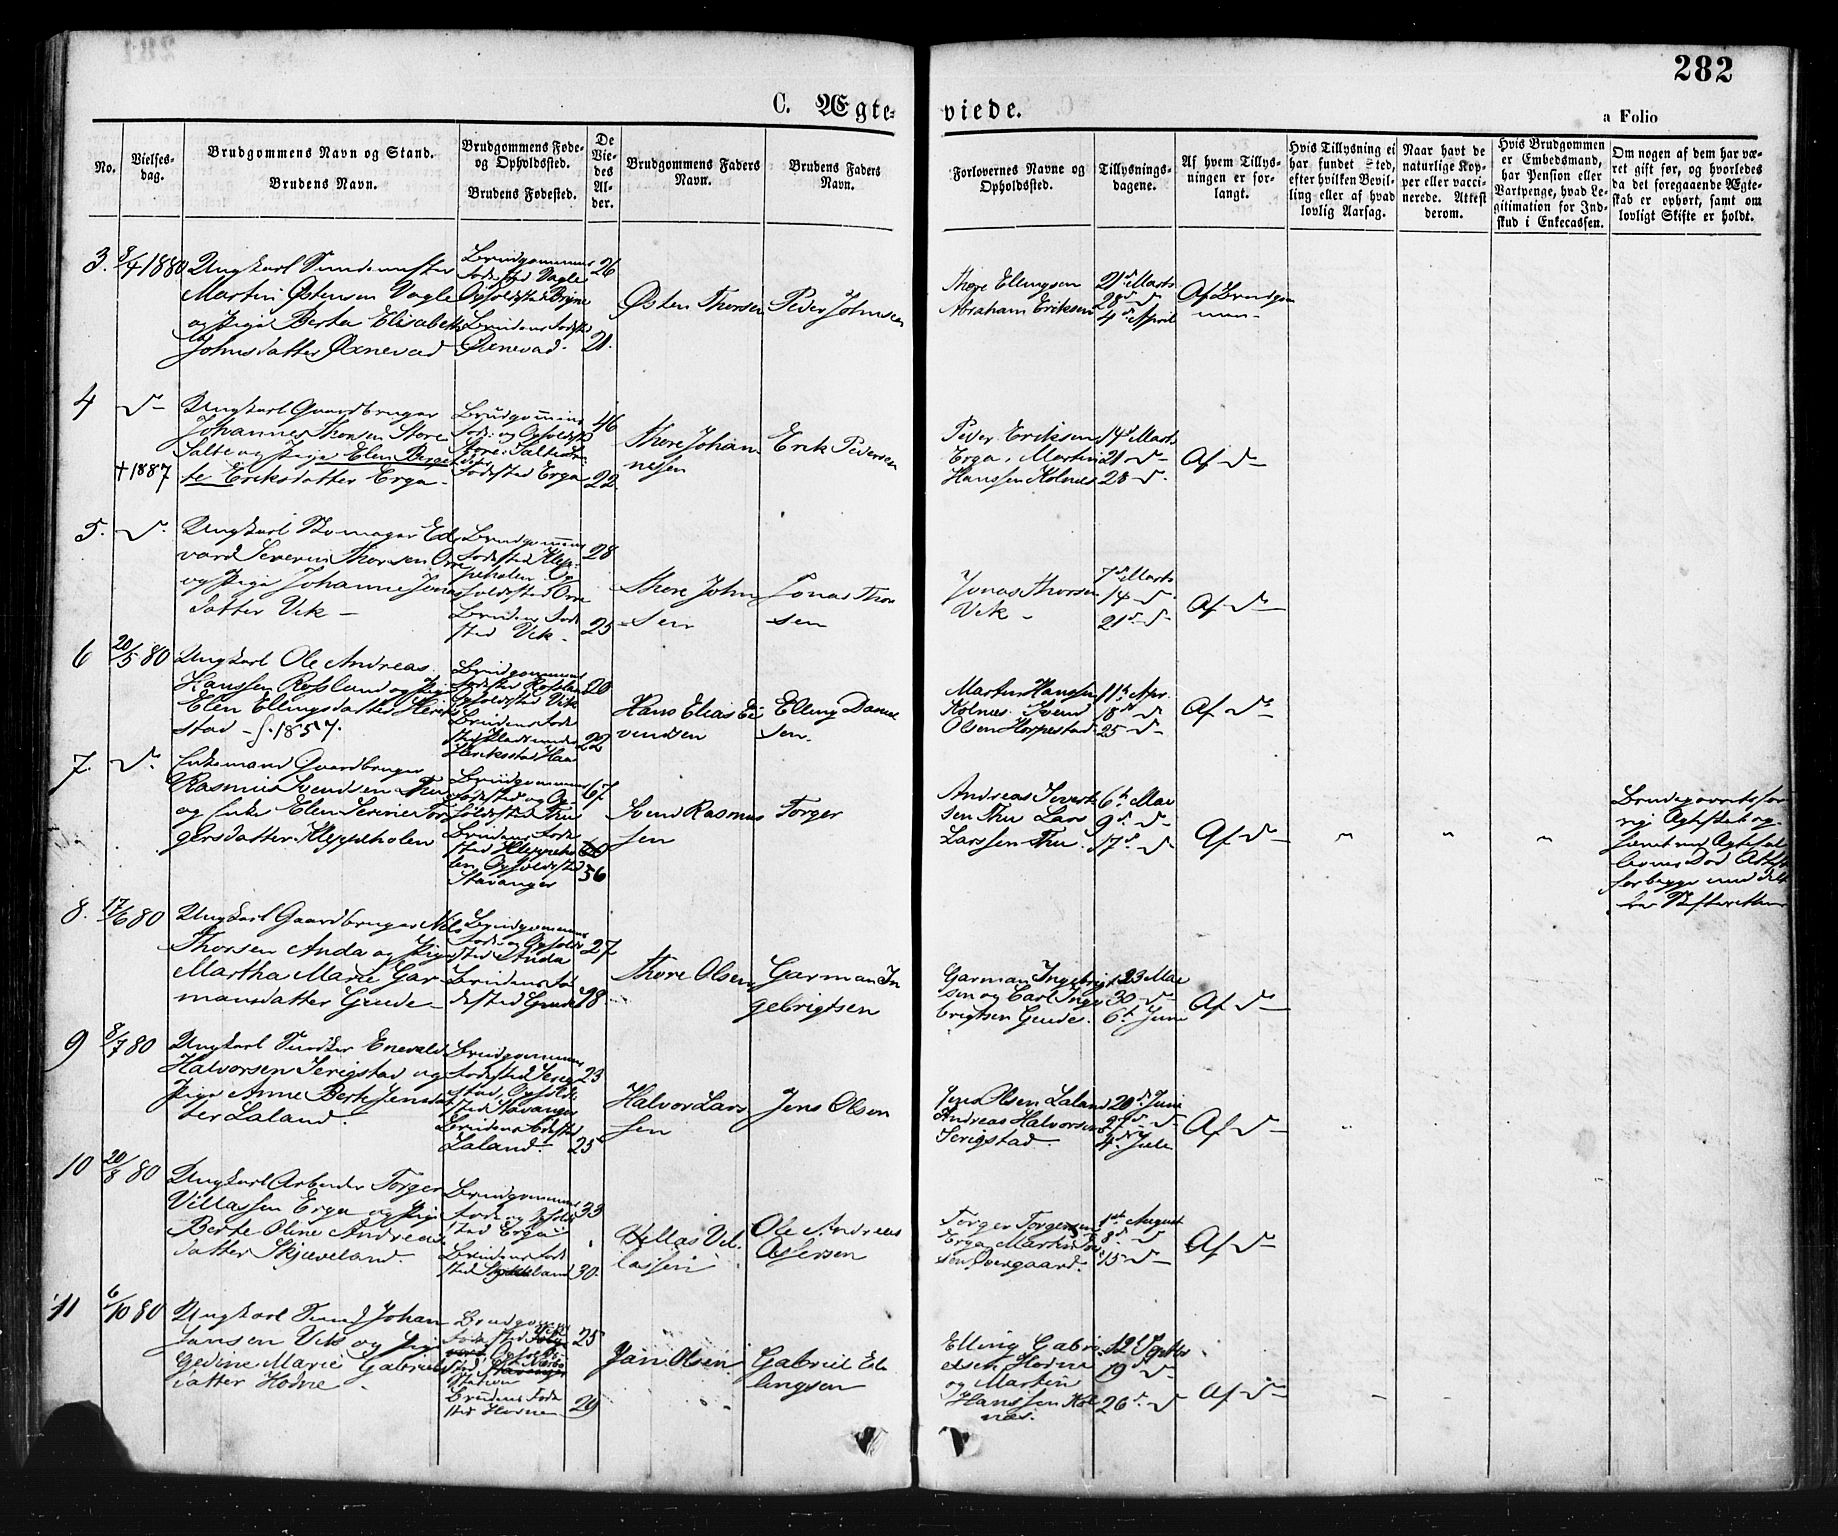 282
C. Ægte-
viede.
a Folio
No.
Vielses-
dag.
Brudgommens Navn og Stand.
Brudens Navn.
Brudgommens Føde-
og Opholdssted.
Brudens Fødested.
De
Vie-
des
Al-
der.
Brudgommens Faders
Navn.
Brudens Faders
Navn.
Forlovernes Navne og
Opholdssted.
Tillysnings-
dagene.
Af hvem Tillys-
ningen er for-
langt.
Hvis Tillysning ei
har fundet Sted,
efter hvilken Bevil-
ling eller af hvad
lovlig Aarsag.
Naar havt de
naturlige Kop-
per eller vacci-
nerede. Attest
derom.
Hvis Brudgommen
er Embedsmand,
har Pension eller
Vartpenge, hvad Le-
gitimation for Ind-
skud i Enkecassen.
Om nogen af dem har væ-
ret gift før, og hvorledes
da det foregaaende Ægte-
skab er ophørt, samt om
lovligt Skifte er holdt.
3.
8/4 1880
Ungkarl
Martin Østensen Vagle
og Pige Berta Elisabeth
Johnsdatter Øxnevad
Brudgommens
Fødested Vagle
Opholdssted Bryne
Brudens Fødested
Øxnevad.
26
21.
Østen Thorsen
Peder Johnsen
Thore Ellingsen
Abraham Eriksen
21d Marts
28d d-
4d April
Af Brudgom
men-
4
d-
+1887
Ungkarl Gaardbruger
Johannes Thorsen Store
Salte og Pige Elen Berge
te Eriksdatter Erga-
Brudgommens
Føde- og Opholdssted
Store Salte
Fødested Erga
46
22.
Thore Johan
nesen
Erik Pedersen
Peder Eriksen
Erga, Martin
Hanssen Kolnes
14d Marts
21 d-
28 d.
Af d-
5.
d-
Ungkarl Skomager Ed
vard Severin Thorsen Orre
og Pige Johanne Jonas
datter Vik-
Brudgommens
Fødested Klep-
peholen Op
holdssted Orre
Brudens Føde
sted Vik-
28
25
Thore John
sen
Jonas Thor
sen
Jonas Thorsen
Vik-
7d Marts
14 d.
21d d-
Af d-
6
20/5 80
Ungkarl Ole Andreas
Hanssen Rosland og Pige
Elen Ellingsdatter Herik
stad - f. 1857.
Brudgommens
Fødested Rosland
Opholdssted Vik
Brudens Føde
Heriksstad Haa
20
22
Hans Elias Ei
vendsen
Elling Daniel
sen.
Martin Hanssen
Kolnes. Svend
Olsen Horpestad
11th Apr.
18d d-
25 d-
Af d-
7.
d-
Enkemand Gaardbruger
Rasmus Svendsen Thu
og Enke Elen Serine Tor
gersdatter Kleppeholen
Brudgommens
Fødested og Op-
holdssted Thu
Brudens Føde
sted Kleppeho
len Opholdssted
Stavanger
67.
56
Svend Rasmus
sen
Torger
Andreas Sivert
sen Thu Lars
Larssen Thu.
6th Mai
9d. d-
17d. d.
Af d-
"
"
"
8.
17/6 80
Ungkarl Gaardbruger Nils
Thorsen Anda og Pige
Martha Marie Gar
mansdatter Grude-
Brudgommens
Føde- og Opholds
sted Anda
Brudens Fø
dested Grude
27
28.
Thore Olsen
Garman In
gebrigtsen
Garman Ingebrigt
sen og Carl Inge
brigtsen Grude.
23 Mai
30 d-
6th Juni
Af d-
9
8/7 80
Ungkarl Snedker Enevald
Halvorsen Serigstad og
Pige Anne Berte Jensdat
ter Laland.
Brudgommens
Fødested Serig
stad, Opholds
sted Stavanger
Brudens Fødested
Laland.
23
25
Halvor Lars
sen
Jens Olsen
Jens Olsen Laland
Andreas Halvorsen
Serigstad.
20d Juni
27d d-
4d Juli
Af d-
10
20/8 80
Ungkarl Arbeider Torger
Villassen Erga og Pige
Berte Oline Andreas
datter Skjæveland.
Brudgommens
Føde og Opholds
sted Erga
Brudens Føde
33
30.
Villas Vil
lassen
Ole Andreas
Assersen
Torger Torgersen
Erga Martin
sen Overgaard.
1st August
8d. d
15 d-
Af d-
11
6/10 80
Ungkarl Smed Johan
Jansen Vik og Pige
Gedine Marie Gabriels
datter Hodne-
Brudgommens
Station
Brudens Føde
sted Hodne
25
29
Jan Olsen
Gabriel El
lingsen
Elling Gabri
elsen Hodne
og Martin
Hanssen Kol
nes.
12 Septbr
19d d-
26d. d
Af d-